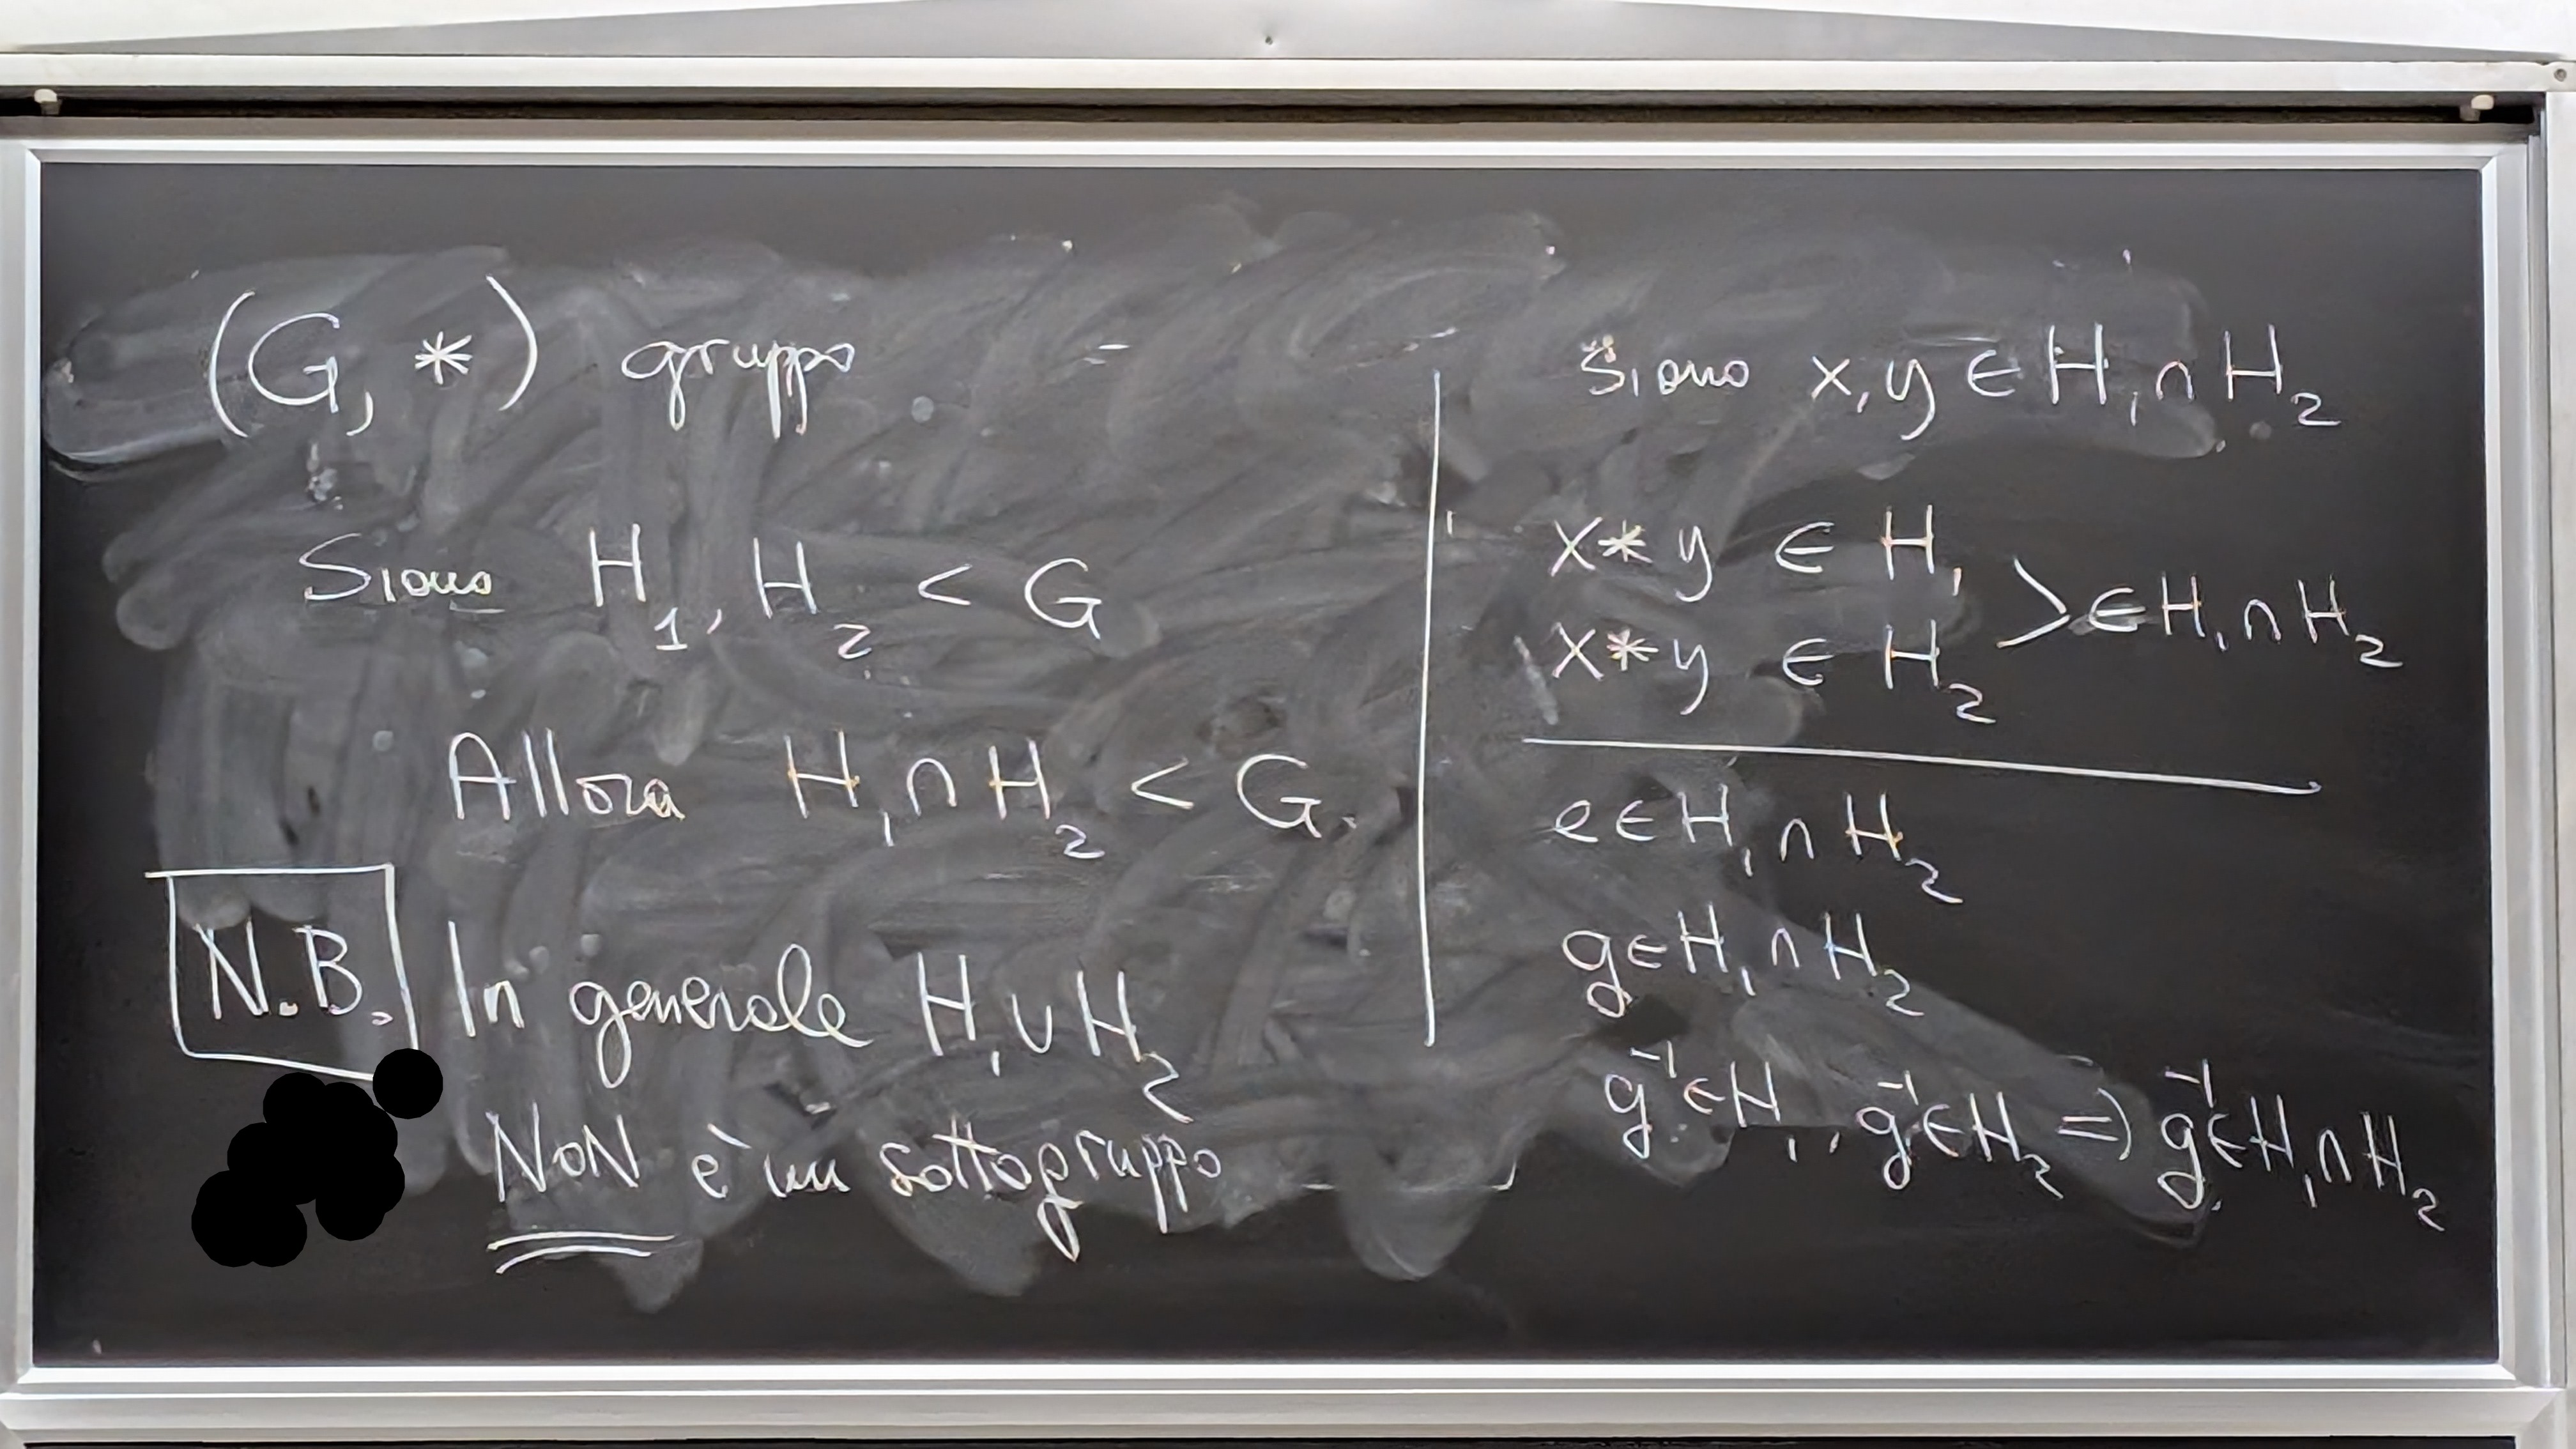 (G, *) gruppo
Siano H₁, H₂ < G
Allora H₁∩H₂ < G.
N.B. In generale H₁∪H₂
NON è un sottogruppo
Siano x,y ∈ H₁∩H₂
x*y ∈ H₁
x*y ∈ H₂ > ∈ H₁∩H₂
e∈H₁∩H₂
g∈H₁∩H₂
g⁻¹∈H₁, g⁻¹∈H₂ ⇒ g⁻¹∈H₁∩H₂